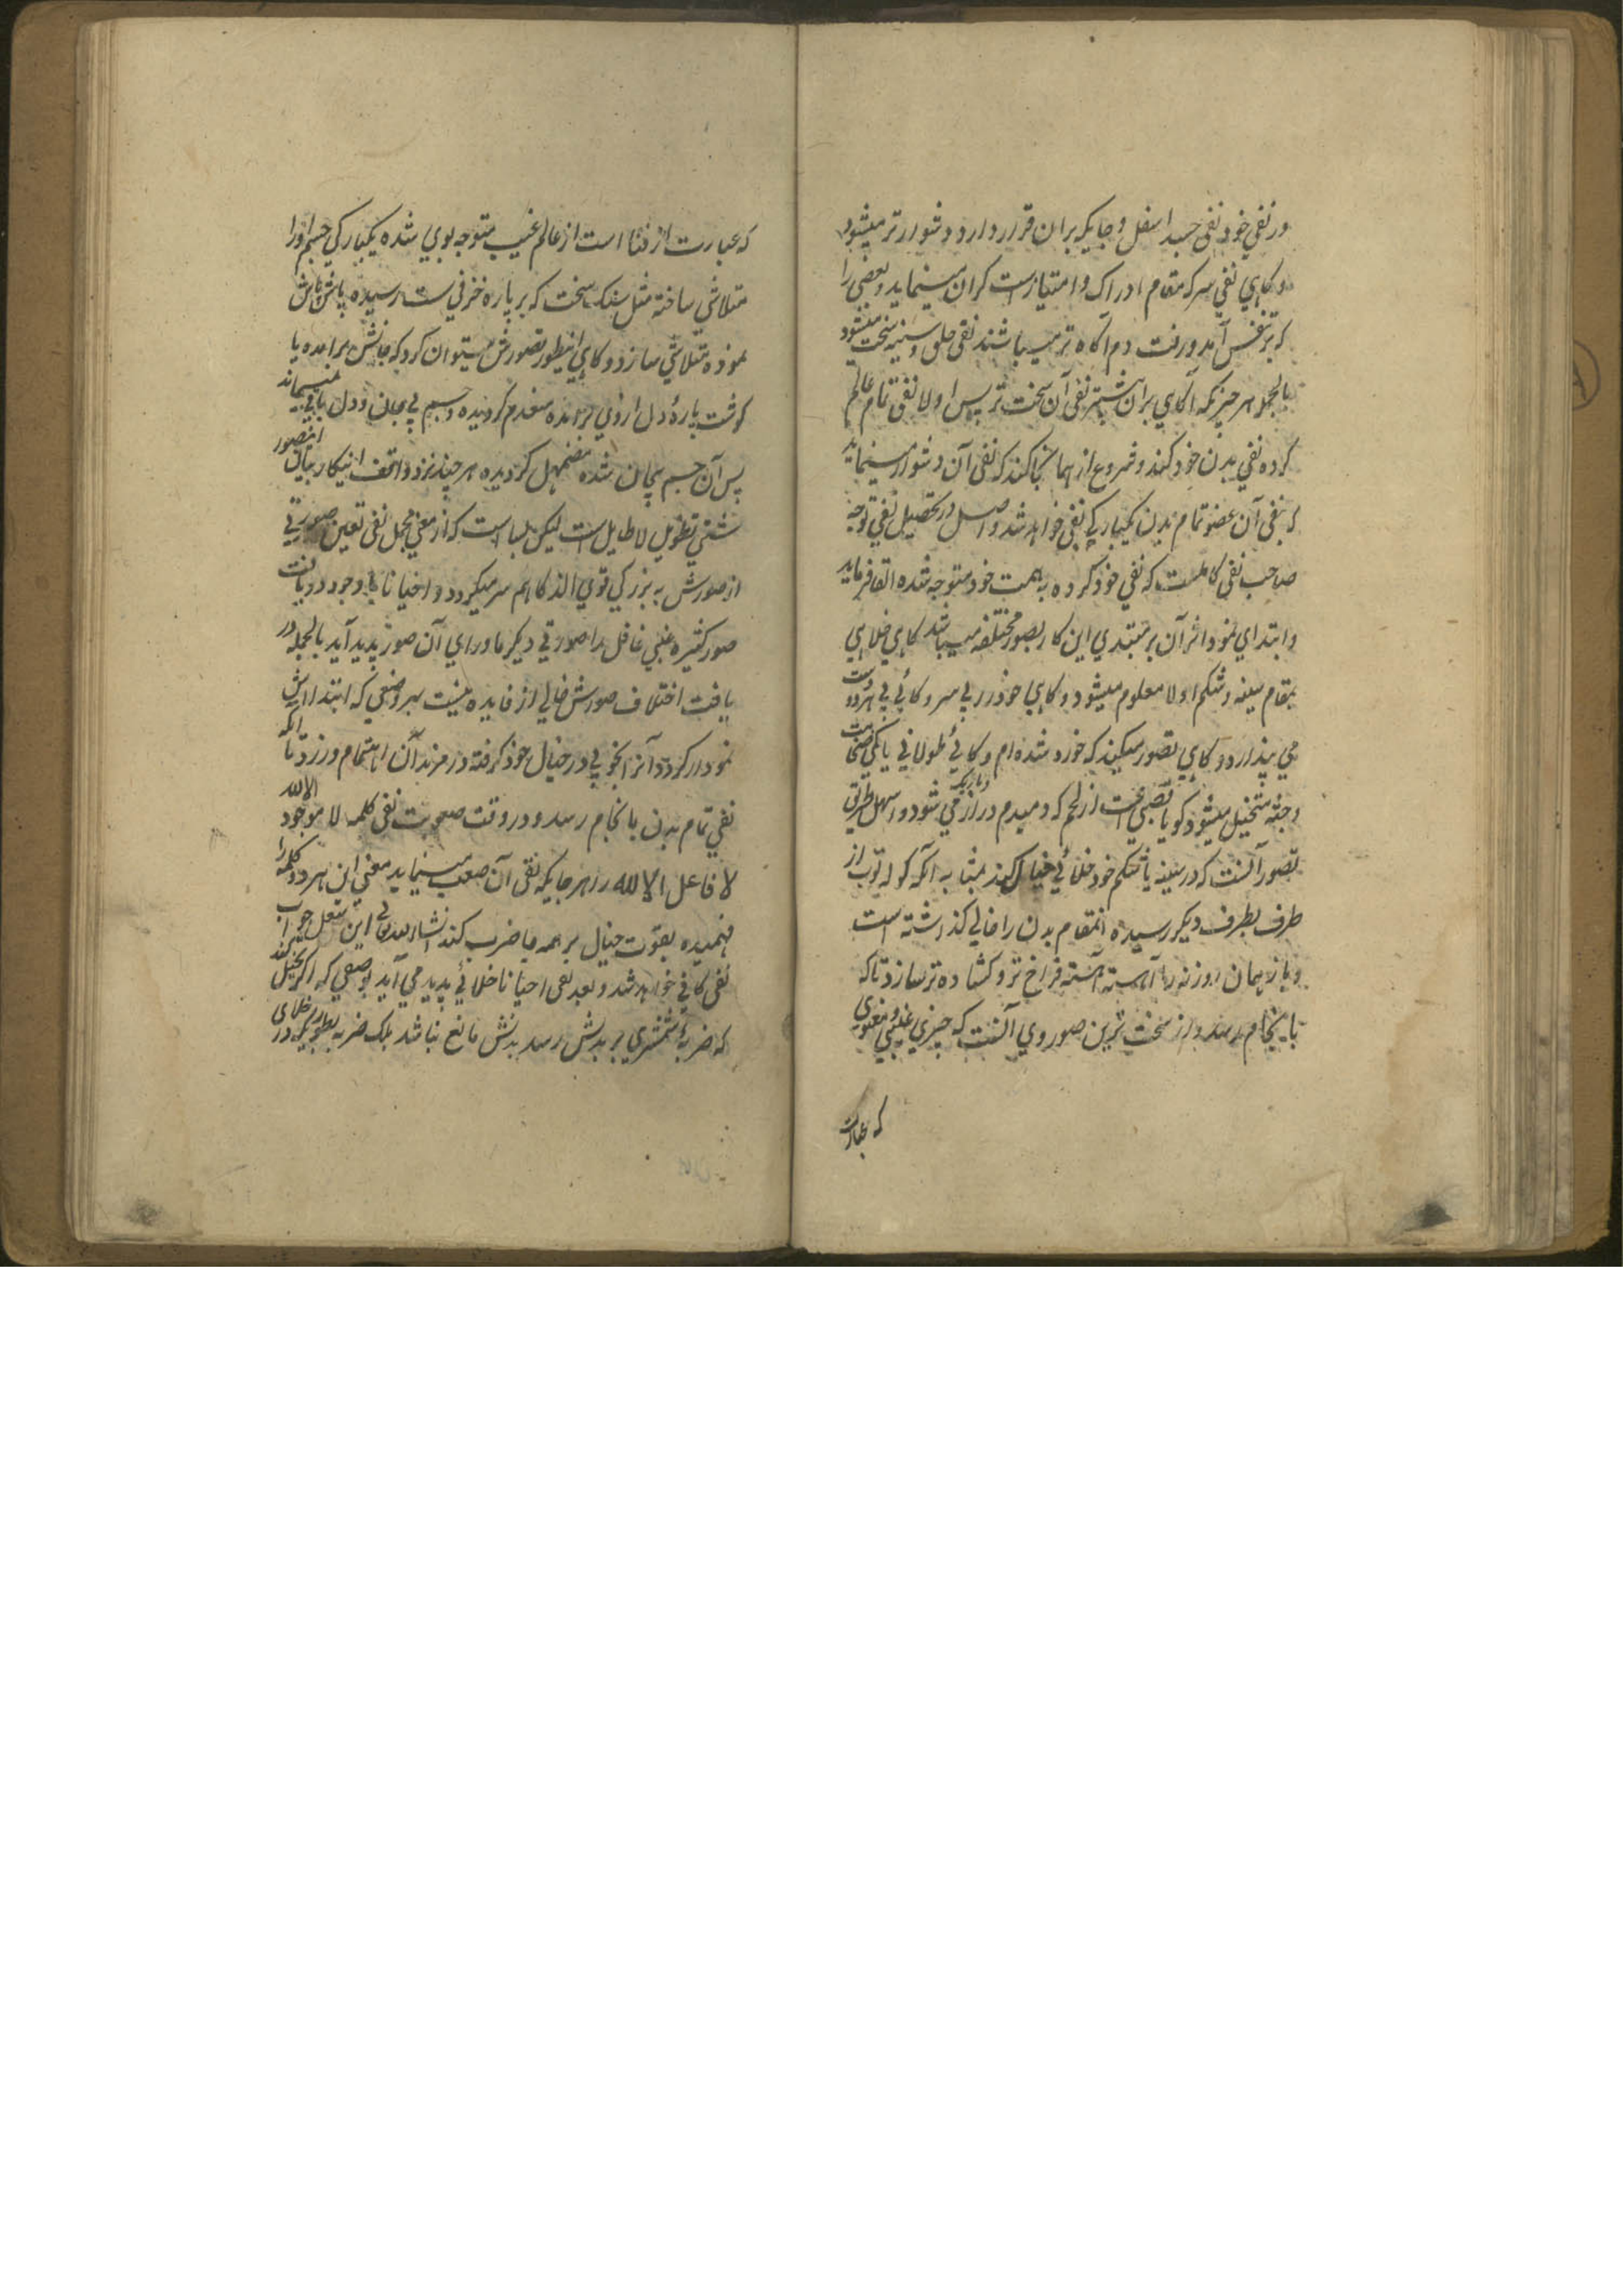 در نفی خود نفی جسد اسفل و جایکه بران قرار دارد دشوارتر میشود
و کاهی نفی سر که مقام ادراک و امتیازست کران مینماید و بعضی را
که بر نفس آمد و رفت دم آکاه تر میباشند نفی حلق و سینه سخت میشود
بالجمله هر چیزیکه آکاهی بران بیشتر نفی آن سخت تر پس اولا نفی تمام عالم
کرده نفی بدن خود کند و شروع از همانجا کند که نفی آن دشوار مینماید
که بنفی آن عضو تمام بدن یکبارکی نفی خواهد شد و اصل در تحصیل نفی توجه
صاحب نفی کاملست که نفی خود کرده به همت خود متوجه شده القا فرماید
و ابتدای نمود اثر آن بر مبتدی این کار بصور مختلفه میباشد کاهی خلاهی
بمقام سینه و شکم اولا معلوم میشود و کاهی خود را بی سر و کاهی بی هر دو دست
می پندارد و کاهی تصور میکند که خورد شده ام و کاهی طولانی یا بکی ضخامت
و جثه متخیل میشود کویا قصبی است از لحم که دمبدم دراز و باریک می شود و سهل طریق
تصور آنست که در سینه یا شکم خود خلائی خیال کند بمثابه آنکه کوله توپ از
طرف بطرف دیکر رسیده آنمقام بدن را خالی کذاشته است
و باز همان روزنه را آهسته آهسته فراخ تر و کشاده تر سازد تا که
بانجام رسد و از سخت ترین صور وی آنست که چیزی غیبی و معنوی
که عبارت
که عبارت از فنا است از عالم غیب متوجه بوی شده یکبارکی جسم او را
متلاشی ساخته مثل سنک سخت که بر پاره خزفی ست رسیده پاش پاش
نموده متلاشی سازد و کاهی اینطور تصورش میتوان کرد که جانش برآمده یا
کوشت پارهٔ دل از وی برآمده منعدم کردیده و جسم بی جان و دل باقی نمیماند
پس آن جسم بیجان شده مضمحل کردیده هر چند نزد واقف اینکار بیان اینصور
شتی تطویل لا طایل است لیکن بسا است که از معنی مجمل نفی تعین صورتی
از صورش به بزرکی قوی الذکا هم سر میکردد و احیانا با وجود دریافت
صور کثیره غبی غافل را صورتی دیکر ماورای آن صور پدید آید بالجمله در
یافت اختلاف صورش خالی از فایده نیست بهر وضعی که ابتدااش
نمودار کردد آنرا بخوبی در خیال خود کرفته در مزید آن اهتمام ورزد تا آنکه
نفی تمام بدن بانجام رسد و در وقت صعوبت نفی کلمه لا موجود الا الله
لا فاعل الا الله در هر جایکه نفی آن صعب مینماید معنی این هر دو کلمه را
فهمیده بقوت خیال بر همه جا ضرب کند انشاء الله تعالی این شغل جواب
نفی کافی خواهد شد و بعد نفی احیانا خلائی پدید می آید بوصفی که اکر تخیل کند
که ضربهٔ شمشیری بر بدنش رسد بدنش مانع نباشد بلک ضربه بطوریکه در خلای